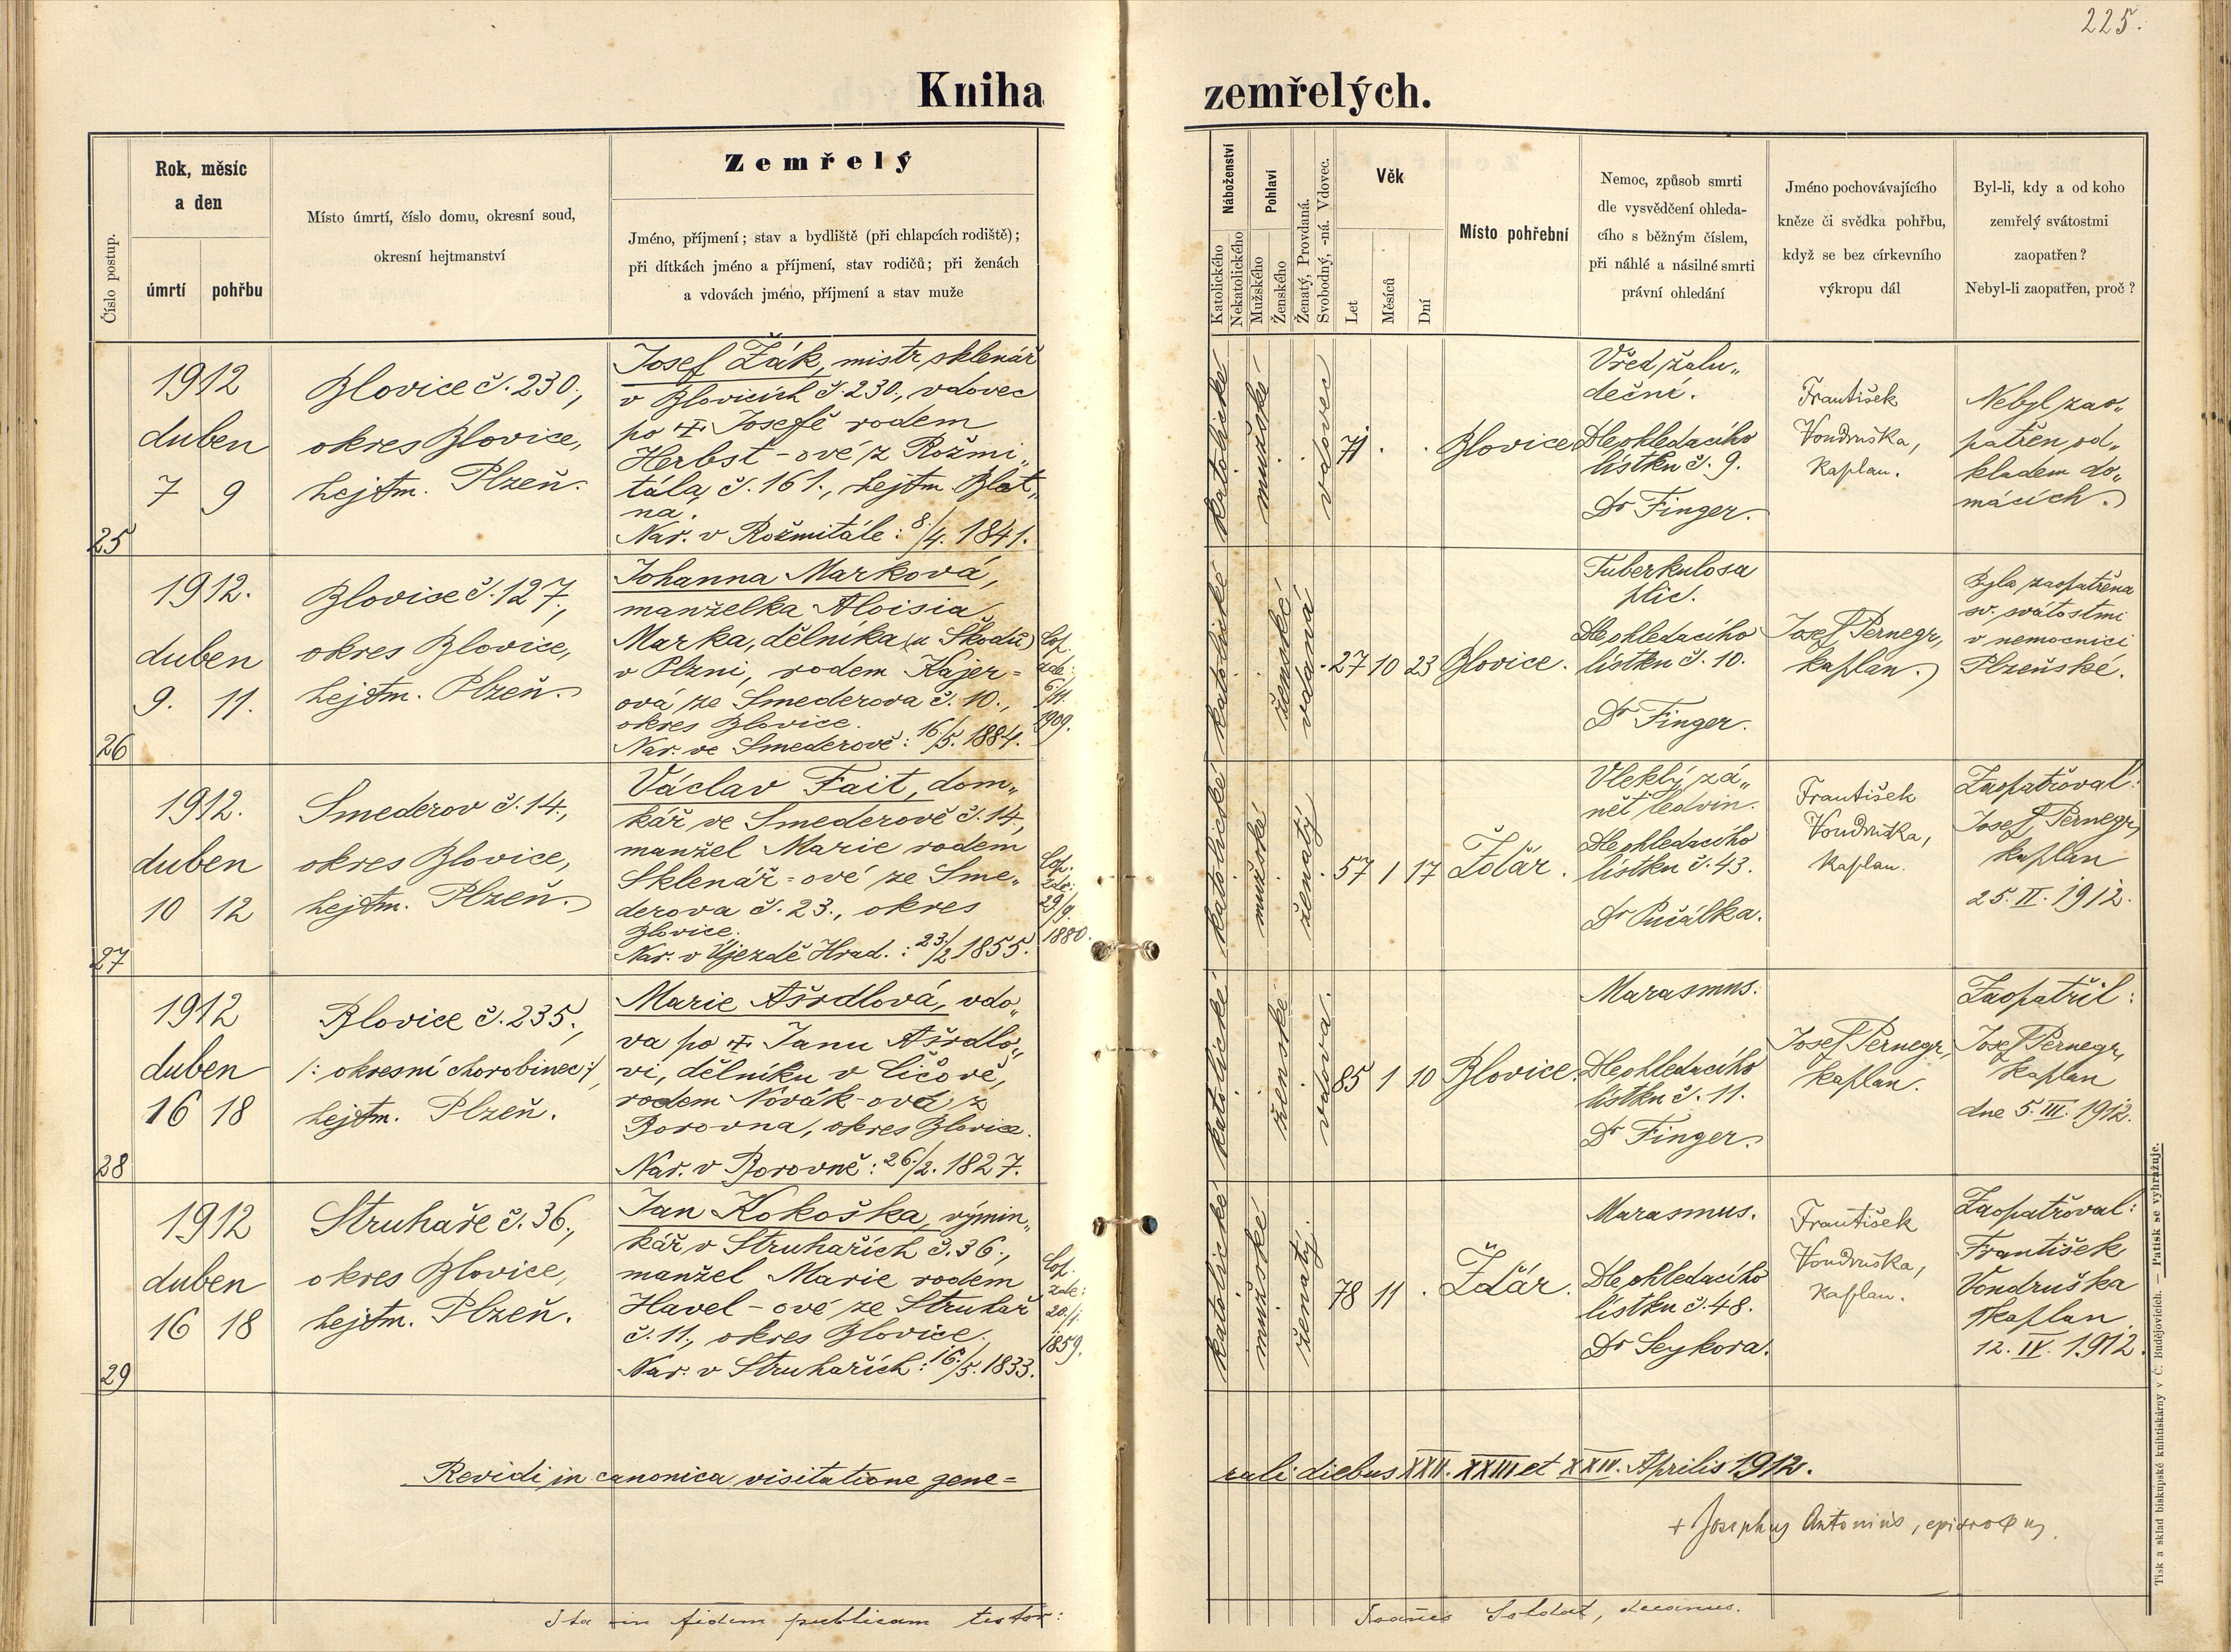 225.
Kniha zemřelých.
Číslo postup.
Rok, měsíc
a den
úmrtí
pohřbu
Místo úmrtí, číslo domu, okresní soud,
okresní hejtmanství
Zemřelý
Jméno, příjmení; stav a bydliště (při chlapcích rodiště);
při dítkách jméno a příjmení, stav rodičů; při ženách
a vdovách jméno, příjmení a stav muže
Náboženství
Katolického
Nekatolického
Pohlaví
Mužského
Ženského
Ženatý, Provdaná.
Svobodný, -ná. Vdovec.
Věk
Let
Měsíců
Dní
Místo pohřební
Nemoc, způsob smrti
dle vysvědčení ohleda-
cího s běžným číslem,
při náhlé a násilné smrti
právní ohledání
Jméno pochovávajícího
kněze či svědka pohřbu,
když se bez církevního
výkropu dál
Byl-li, kdy a od koho
zemřelý svátostmi
zaopatřen?
Nebyl-li zaopatřen, proč?
25
1912
duben
7 9
Blovice č. 230.,
okres Blovice,
hejtm. Plzeň.
Josef Žák, mistr sklenář
v Blovicích č. 230., vdovec
po † Josefě rodem
Herbst-ové z Rožmi„
tála, č. 161., hejtm. Blat„
na.
Nar. v Rožmitále: 8./4. 1841.
katolické
mužské
vdovec
71 . .
Blovice
Vřed žalu„
deční.
Dle ohledacího
lístku č. 9.
Dr Finger.
František
Vondruška,
kaplan.
Nebyl zao„
patřen od„
kladem do„
mácích.
26
1912.
duben
9. 11.
Blovice č. 127.,
okres Blovice,
hejtm. Plzeň.
Johanna Marková,
manželka Aloisia
Marka, dělníka (u Škodů)
v Plzni, rodem Kajer=
ová ze Smederova č. 10.,
okres Blovice.
Nar. ve Smederově: 16./5. 1884.
Cop.
zde:
6./11.
1909.
katolické
ženské
vdaná
27 10 23
Blovice.
Tuberkulosa
plic.
Dle ohledacího
lístku č. 10.
Dr Finger.
Josef Pernegr,
kaplan.
Byla zaopatřena
sv. svátostmi
v nemocnici
Plzeňské.
27
1912.
duben
10 12
Smederov č. 14.,
okres Blovice,
hejtm. Plzeň.
Václav Fait, dom„
kář ve Smederově č. 14.,
manžel Marie rodem
Sklenář=ové ze Sme„
derova č. 23., okres
Blovice.
Nar. v Újezdě Hrad.: 23./2 1855.
Cop.
zde:
29./9.
1880.
katolické
mužské
ženatý
57 1 17
Ždár.
Vleklý zá„
nět ledvin.
Dle ohledacího
lístku č. 43.
Dr Pučálka.
František
Vondruška,
kaplan.
Zaopatřoval:
Josef Pernegr,
kaplan
25. II. 1912.
28
1912
duben
16 18
Blovice č. 235.,
/: okresní chorobinec :/,
hejtm. Plzeň.
Marie Ašrdlová, vdo„
va po † Janu Ašrdlo„
vi, dělníku v Čičově,
rodem Novák-ové z
Borovna, okres Blovice.
Nar. v Borovně: 26./2. 1827.
katolické
ženské
vdova.
85 1 10
Blovice.
Marasmus.
Dle ohledacího
lístku č. 11.
Dr Finger.
Josef Pernegr,
kaplan.
Zaopatřil:
Josef Pernegr,
kaplan
dne 5. III. 1912.
29
1912
duben
16 18
Struhaře č. 36.,
okres Blovice,
hejtm. Plzeň.
Jan Kokoška, výmin„
kář v Struhařích č. 36.,
manžel Marie rodem
Havel-ové ze Struhař
č. 11., okres Blovice.
Nar. v Struhařích: 16./5. 1833.
Cop.
zde:
20./1.
1859.
katolické
mužské
ženatý.
78 11 .
Ždár.
Marasmus.
Dle ohledacího
lístku č. 48.
Dr Seykora.
František
Vondruška,
kaplan.
Zaopatřoval:
František
Vondruška
kaplan
12. IV. 1912.
Revidi in canonica visitatione gene=
rali diebus XXII. XXIII et XXIV. Aprilis 1912.
+ Josephus Antonius, episcopus.
Ita in fidem publicam testor:
Joañes Soldat, decanus.
Tisk a sklad biskupské knihtiskárny v Č. Budějovicích. — Patisk se vyhražuje.